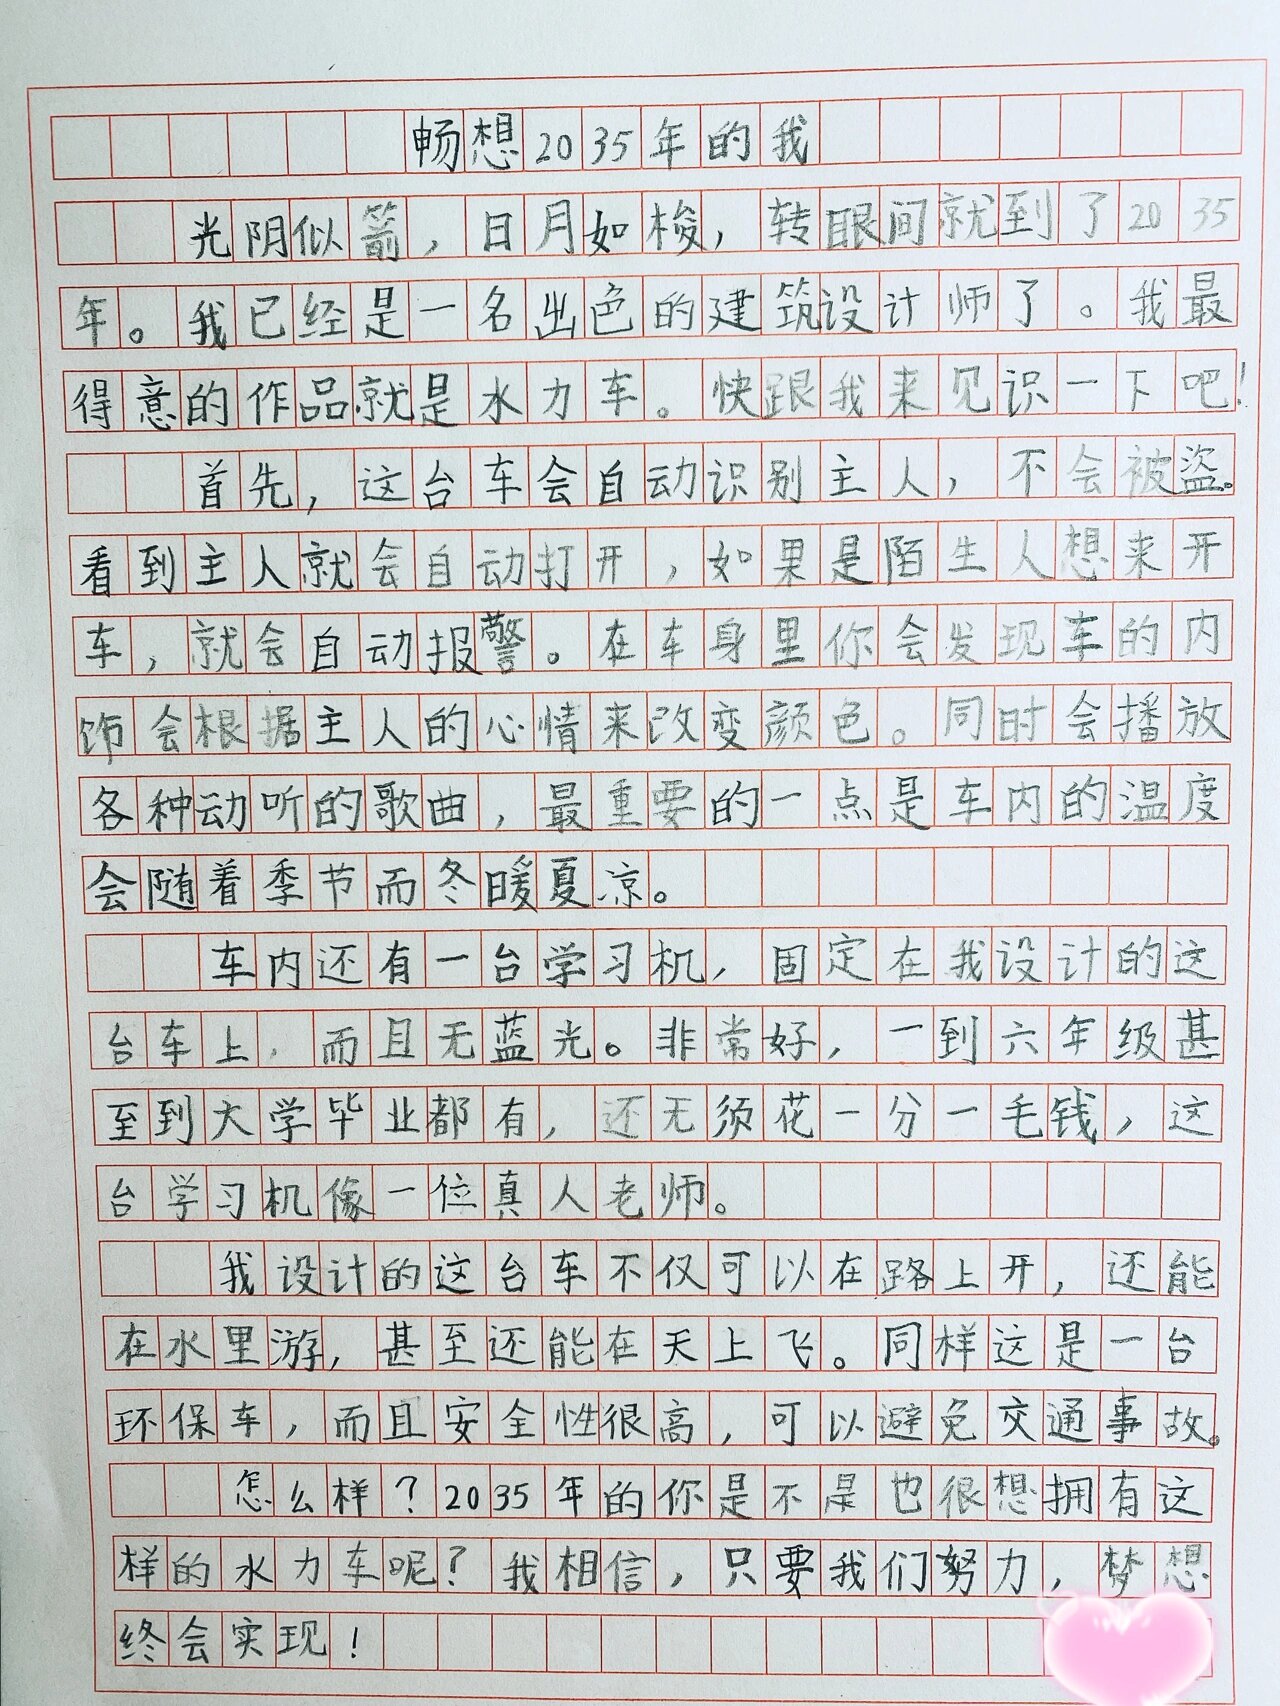 畅想2035年的我
光阴似箭，日月如梭，转眼间就到了2035
年。我已经是一名出色的建筑设计师了。我最
得意的作品就是水力车。快跟我来见识一下吧！
首先，这台车会自动识别主人，不会被盗。
看到主人就会自动打开，如果是陌生人想来开
车，就会自动报警。在车身里你会发现车的内
饰会根据主人的心情来改变颜色。同时会播放
各种动听的歌曲，最重要的一点是车内的温度
会随着季节而冬暖夏凉。
车内还有一台学习机，固定在我设计的这
台车上，而且无蓝光。非常好，一到六年级甚
至到大学毕业都有，还无须花一分一毛钱，这
台学习机像一位真人老师。
我设计的这台车不仅可以在路上开，还能
在水里游，甚至还能在天上飞。同样这是一台
环保车，而且安全性很高，可以避免交通事故。
怎么样？2035年的你是不是也很想拥有这
样的水力车呢？我相信，只要我们努力，梦想
终会实现！